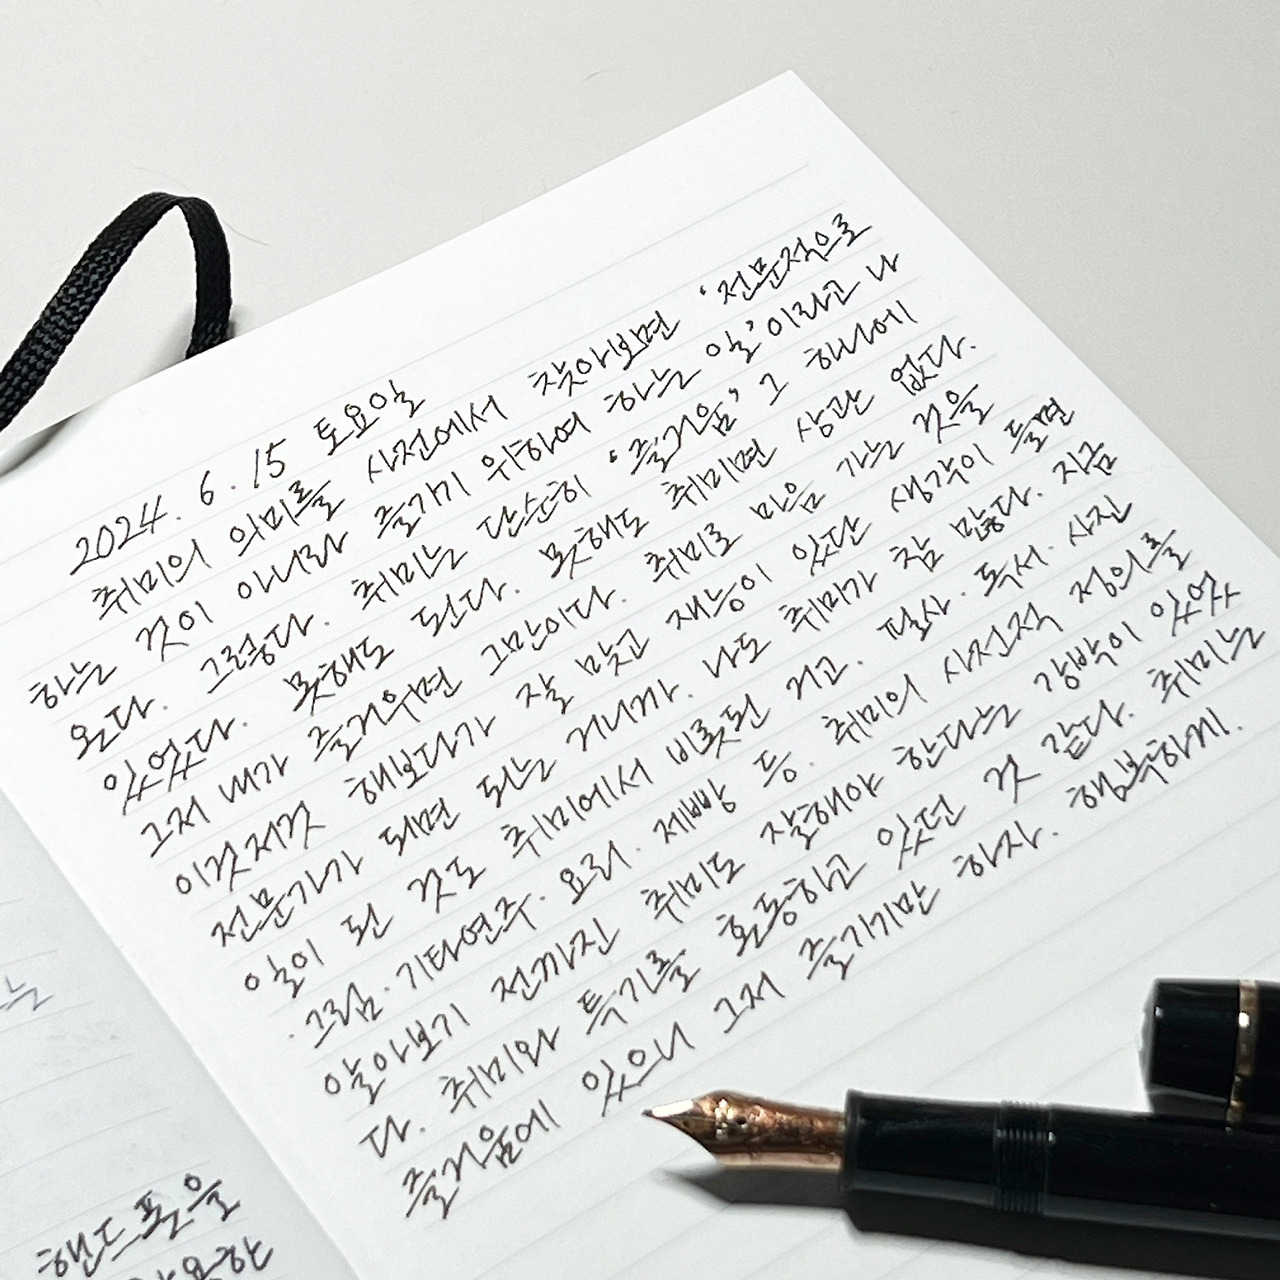 2024. 6. 15 토요일
취미의 의미를 사전에서 찾아보면 '전문적으로
하는 것이 아니라 즐기기 위하여 하는 일'이라고 나
온다. 그렇다. 취미는 단순히 '즐거움' 그 하나에
있었다. 못해도 된다. 못해도 취미면 상관 없다.
그저 내가 즐거우면 그만이다. 취미로 마음 가는 것을
이것저것 해보다가 잘 맞고 재능이 있단 생각이 들면
전문가가 되면 되는 거니까. 나도 취미가 참 많다. 지금
일이 된 것도 취미에서 비롯된 거고. 필사. 독서. 사진
. 그림. 기타연주. 요리. 제빵 등. 취미의 사전적 정의를
알아보기 전까진 취미도 잘해야 한다는 강박이 있었
다. 취미와 특기를 혼동하고 있던 것 같다. 취미는
즐거움에 있으니 그저 즐기기만 하자. 행복하게.
는
핸드폰을